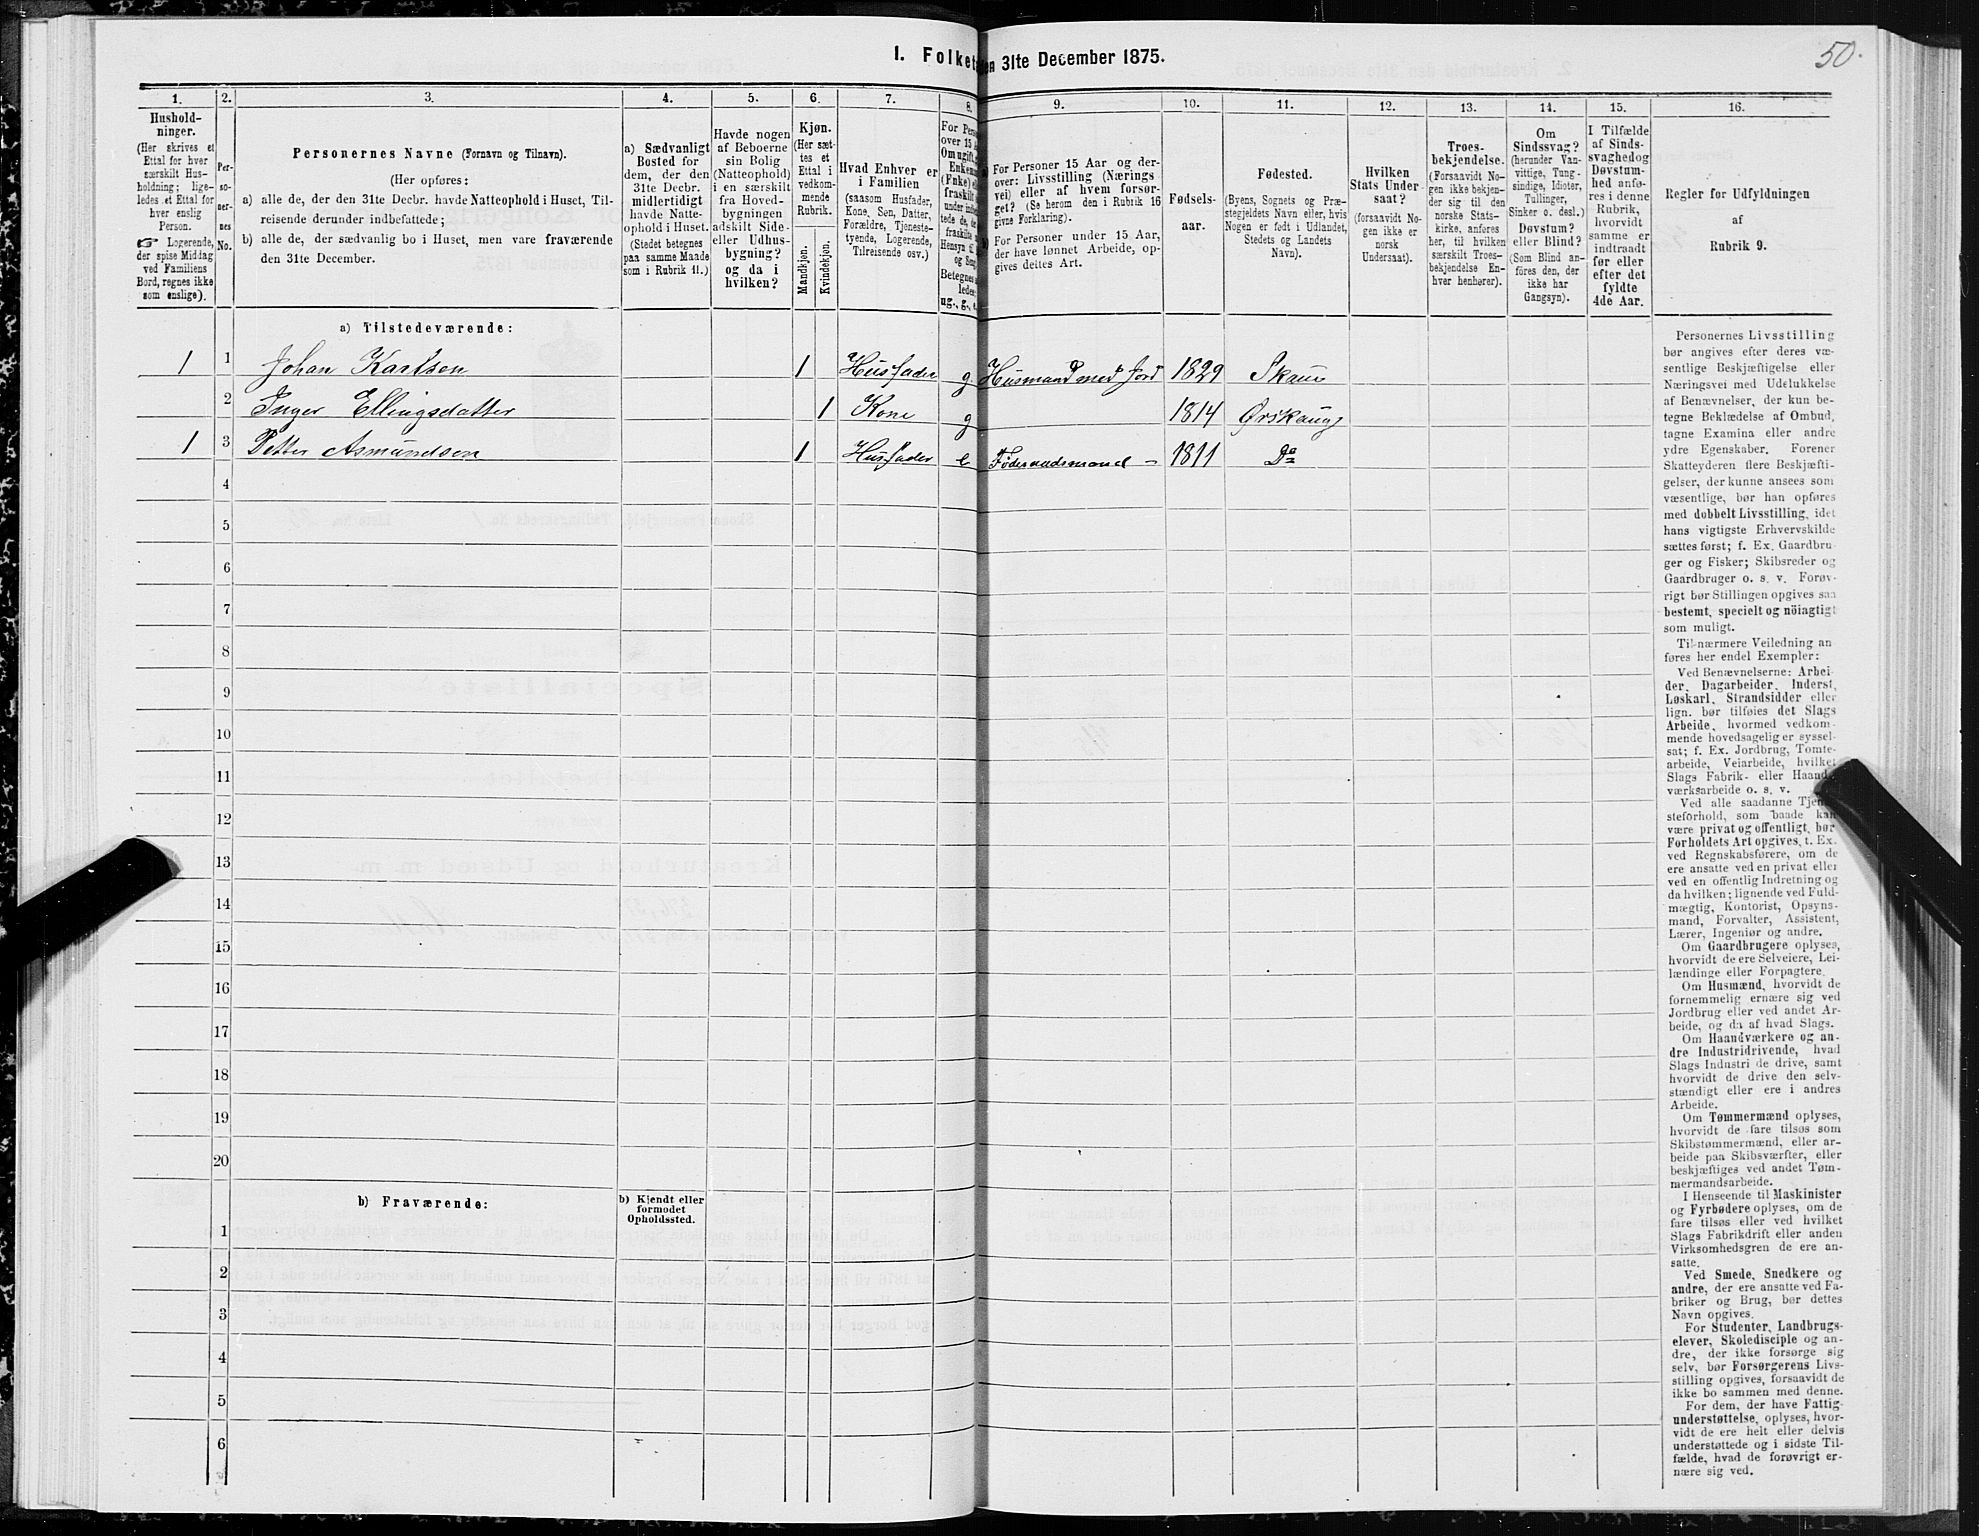 50.
I. Folket
den 31te December 1875.
1.
2.
3.
4.
5.
6.
7.
8.
9.
10.
11.
12.
13.
14.
15.
16.
Hushold-
ninger.
(Her skrives et
Ettal for hver
særskilt Hus-
holdning; lige-
ledes et Ettal for
hver enslig
Person.
☞ Logerende,
der spise Middag
ved Familiens
Bord, regnes ikke
som enslige).
Per-
so-
ner-
nes
No.
Personernes Navne (Fornavn og Tilnavn).
(Her opføres:
a) alle de, der den 31te Decbr. havde Natteophold i Huset, Til-
reisende derunder indbefattede;
b) alle de, der sædvanlig bo i Huset, men vare fraværende
den 31te December.
a) Sædvanligt
Bosted for
dem, der den
31te Decbr.
midlertidigt
havde Natte-
ophold i Huset.
(Stedet betegnes
paa samme Maade
som i Rubrik 11.)
Havde nogen
af Beboerne
sin Bolig
(Natteophold)
i en særskilt
fra Hoved-
bygningen
adskilt Side-
eller Udhus-
bygning?
og da i
hvilken?
Kjøn.
(Her sæt-
tes et
Ettal i
vedkom-
mende
Rubrik.
Mandkjøn.
Kvindekjøn.
Hvad Enhver er
i Familien
(saasom Husfader,
Kone, Søn, Datter,
Forældre, Tjeneste-
tyende, Logerende,
Tilreisende osv.)
For Pers
over 15 A
Om ugift,
Enkem
(Enke) el
fraskilt
under indbe
tede de, de
fraskilte
Hensyn til
og Seng
Betegnes
ledes:
ug., g., e.
a) For Personer 15 Aar og der-
over: Livsstilling (Nærings
vei) eller af hvem forsør-
get? (Se herom den i Rubrik 16
givne Forklaring).
b) For Personer under 15 Aar,
der have lønnet Arbeide, op-
gives dettes Art.
Fødsels-
aar.
Fødested.
(Byens, Sognets og Præ-
stegjeldets Navn eller, hvis
Nogen er født i Udlandet,
Stedets og Landets
Navn).
Hvilken
Stats Under-
saat?
(forsaavidt No-
gen ikke er
norsk
Undersaat).
Troes-
bekjendelse.
(Forsaavidt No-
gen ikke bekjen-
der sig til den
norske Stats-
kirke, anføres
her, til hvilken
særskilt Troes-
bekjendelse En-
hver henhører).
Om
Sindssvag?
(herunder Van-
vittige, Tung-
sindige, Idioter,
Tullinger,
Sinker o. desl.)
Døvstum?
eller Blind?
(Som Blind an-
føres den, der
ikke har
Gangsyn).
I Tilfælde
af Sinds-
svaghedog
Døvstum-
hed anfø-
res i denne
Rubrik,
hvorvidt
samme er
indtraadt
før eller
efter det
fyldte
4de Aar.
Regler for Udfyldningen
af
Rubrik 9.
a) Tilstedeværende:
1 1 Johan Karlsen 1 Husfader g. Husmand med Jord 1829 Skaun
2 Inger Ellingsdatter 1 Kone g 1814 Ørskaug
1 3 Petter Asmundsen 1 Husfader e Føderaadsmand - 1811 Do
4
5
6
7
8
9
10
11
12
13
14
15
16
17
18
19
20
b) Fraværende:
b) Kjendt eller
formodet
Opholdssted.
1
2
3
4
5
6
Personernes Livsstilling
bør angives efter deres væ-
sentlige Beskjæftigelse eller
Næringsvei med Udelukkelse
af Benævnelser, der kun be-
tegne Beklædelse af Ombud,
tagne Examina eller andre
ydre Egenskaber. Forener
Skatteyderen flere Beskjæfti-
gelser, der kunne ansees som
væsentlige, bør han opføres
med dobbelt Livsstilling, idet
hans vigtigste Erhvervskilde
sættes først; f. Ex. Gaardbru-
ger og Fisker; Skibsreder og
Gaardbruger o. s. v. Forøv-
rigt bør Stillingen opgives saa
bestemt, specielt og nöiagtigt
som muligt.
Til nærmere Veiledning an
føres her endel Exempler:
Ved Benævnelserne: Arbei-
der, Dagarbeider, Inderst,
Løskarl, Strandsidder eller
lign. bør tilføies det Slags
Arbeide, hvormed vedkom-
mende hovedsagelig er syssel-
sat; f. Ex. Jordbrug, Tomte-
arbeide, Veiarbeide, hvilket
Slags Fabrik- eller Haand-
værksarbeide o. s. v.
Ved alle saadanne Tjene-
steforhold, som baade kan
være privat og offentligt, bør
Forholdets Art opgives, t. Ex.
ved Regnskabsførere, om de
ere ansatte ved en privat eller
ved en offentlig Indretning og
da hvilken; lignende ved Fuld-
mægtig, Kontorist, Opsyns-
mand, Forvalter, Assistent,
Lærer, Ingeniør og andre.
Om Gaardbrugere oplyses,
hvorvidt de ere Selveiere, Lei-
lændinge eller Forpagtere.
Om Husmænd, hvorvidt de
fornemmelig ernære sig ved
Jordbrug eller ved andet Ar-
beide, og da af hvad Slags.
Om Haandværkere og an-
dre Industridrivende, hvad
Slags Industri de drive, samt
hvorvidt de drive den selv-
stændigt eller ere i andres
Arbeide.
Om Tømmermænd oplyses,
hvorvidt de fare tilsøs som
Skibstømmermænd, eller ar-
beide paa Skibsværfter, eller
beskjæftiges ved andet Tøm-
mermandsarbeide.
I Henseende til Maskinister
og Fyrbødere oplyses, om de
fare tilsøs eller ved hvilket
Slags Fabrikdrift eller anden
Virksomhedsgren de ere an-
satte.
Ved Smede, Snedkere og
andre, der ere ansatte ved Fa-
briker og Brug, bør dettes
Navn opgives.
For Studenter, Landbrugs-
elever, Skoledisciple og an-
dre, der ikke forsørge sig
selv, bør Forsørgerens Livs-
stilling opgives, forsaavidt de
ikke bo sammen med denne.
For dem, der have Fattig-
understøttelse, oplyses, hvor-
vidt de ere helt eller delvis
understøttede og i sidste Til-
fælde, hvad de forøvrigt er-
nære sig ved.